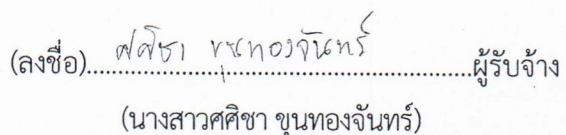 (ลงชื่อ)......ศศิชา ขุนทองจันทร์......ผู้รับจ้าง
(นางสาวศศิชา ขุนทองจันทร์)